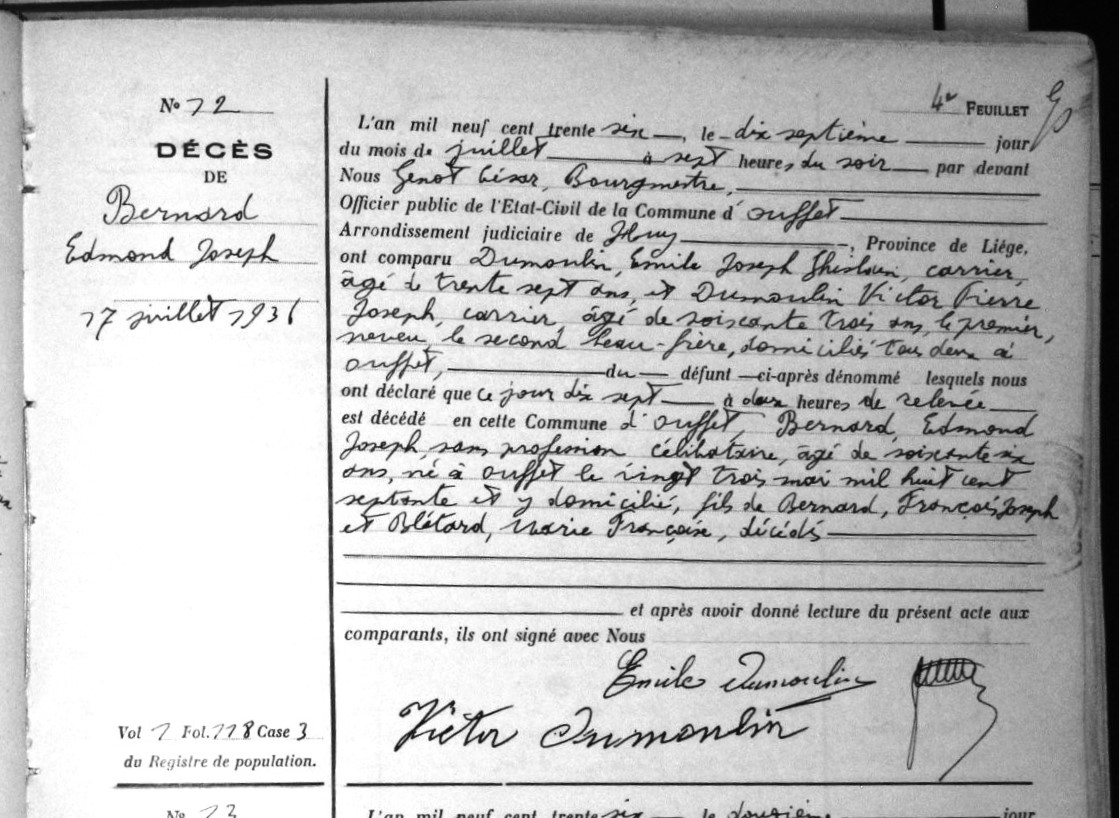 4e FEUILLET
No 12
DÉCÈS
DE
Bernard
Edmond Joseph
17 juillet 1936
L'an mil neuf cent trente six, le dix septième jour
du mois de juillet à sept heures du soir par devant
Nous Genot César, Bourgmestre,
Officier public de l'Etat-Civil de la Commune d'Ouffet
Arrondissement judiciaire de Huy, Province de Liége,
ont comparu Dumoulin, Emile Joseph Ghislain, carrier,
âgé de trente sept ans, et Dumoulin Victor Pierre
Joseph, carrier, âgé de soixante trois ans, le premier,
neveu, le second beau-frère, domiciliés tous deux à
Ouffet, du défunt ci-après dénommé lesquels nous
ont déclaré que ce jour dix sept à deux heures de relevée
est décédé en cette Commune d'Ouffet, Bernard, Edmond
Joseph, sans profession célibataire, âgé de soixante six
ans, né à Ouffet le vingt trois mai mil huit cent
septante et y domicilié, fils de Bernard, François Joseph
et Blétard, Marie Françoise, décédés
et après avoir donné lecture du présent acte aux
comparants, ils ont signé avec Nous
Emile Dumoulin
Victor Dumoulin
Vol 1 Fol. 118 Case 3
du Registre de population.
No 13
L'an mil neuf cent trente six le douzième jour